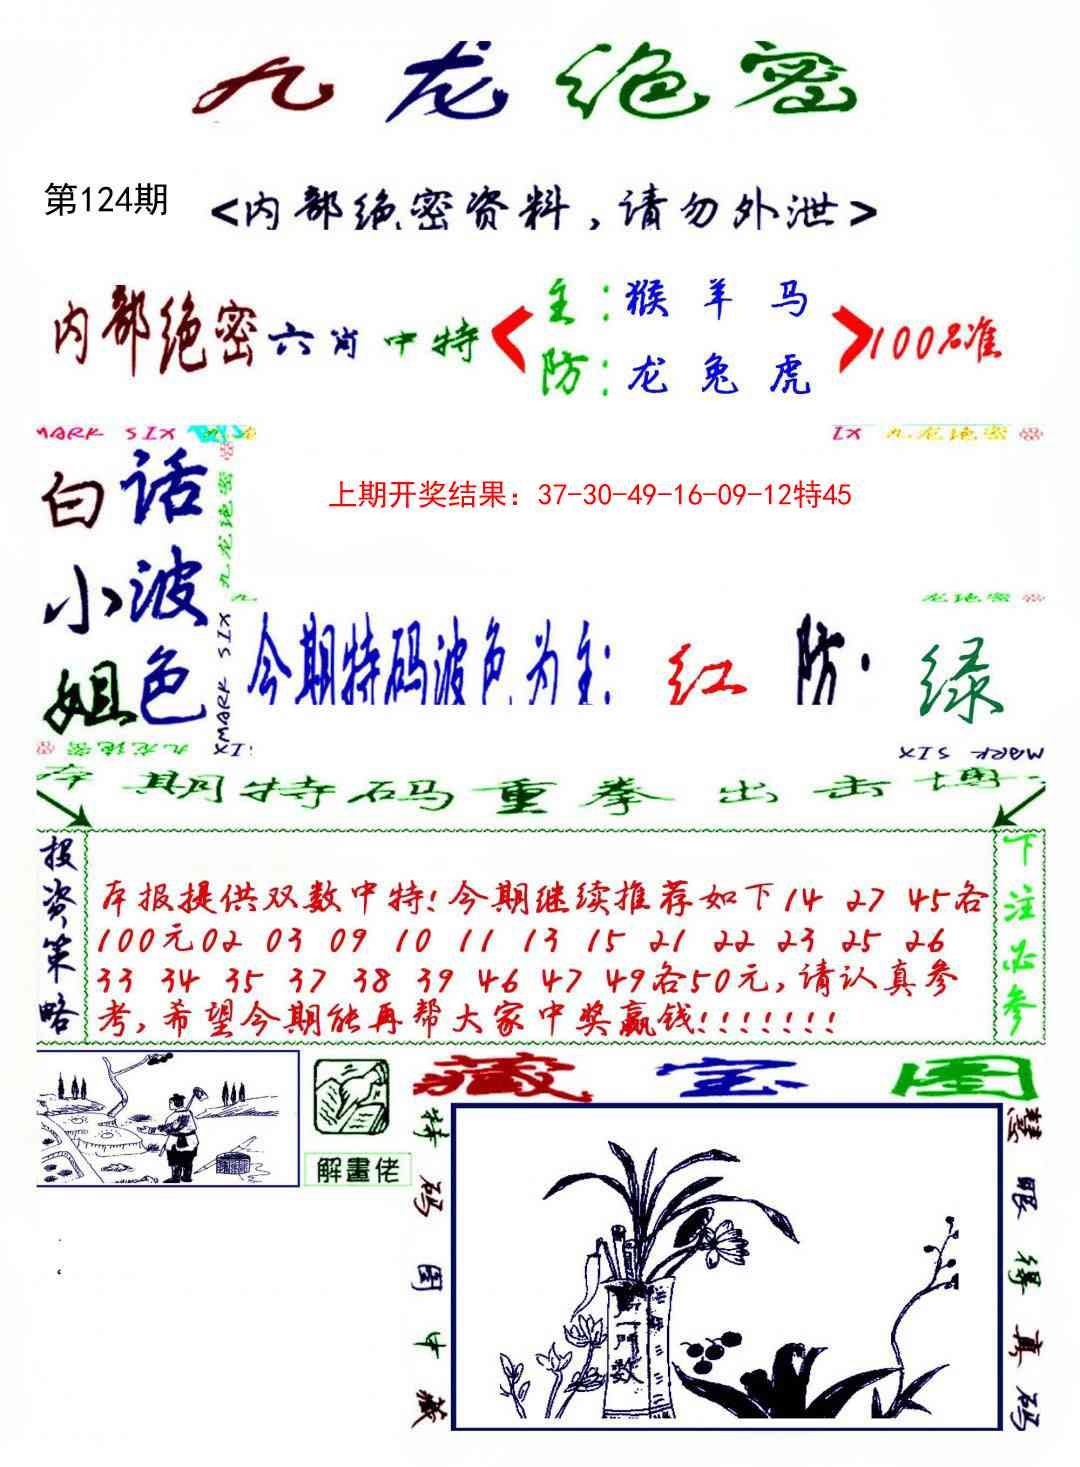 九龙绝密
第124期
<内部绝密资料,请勿外泄>
内部绝密六肖中特
主:猴 羊 马
防:龙 兔 虎
100%准
MARK SIX
IX 九龙绝密
白小姐
话波色
九龙绝密
MARK SIX
上期开奖结果：37-30-49-16-09-12特45
龙绝密
今期特码波色为主:红 防·绿
九龙绝密
SIX
MARK SIX
本期特码重拳出击博
投资策略
本报提供双数中特!今期继续推荐如下14 27 45各
100元02 03 09 10 11 13 15 21 22 23 25 26
33 34 35 37 38 39 46 47 49各50元,请认真参
考,希望今期能再帮大家中奖赢钱!!!!!!!
下注必参
解畫佬
藏宝图
特码图中藏
一门数
慧眼得真码